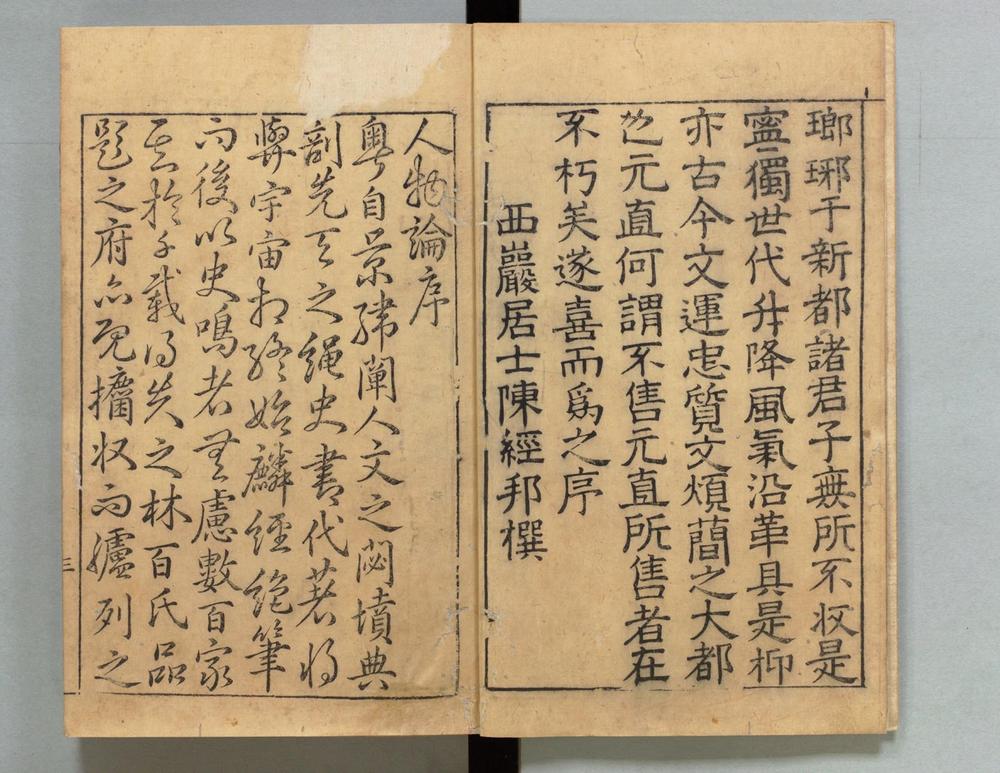 瑯琊于新都諸君子無所不収是
寧獨世代升降風氣沿革具是抑
亦古今文運忠質文煩蕳之大都
也元直何謂不售元直所售者在
不朽矣遂喜而爲之序
西巖居士陳經邦撰
人物論序
粵自景緯闡人文之閟墳典
剖先天之繩史書代著將
與宇宙相終始麟經絕筆
而後以史鳴者無慮數百家
至於千載得失之林百氏品
題之府亦既擴収而臚列之
三